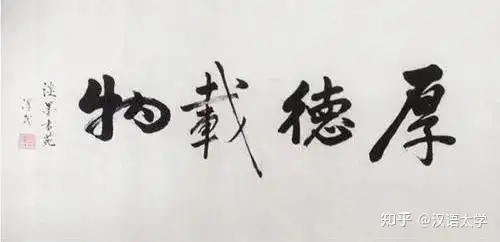 厚德載物
知乎 @汉语太学